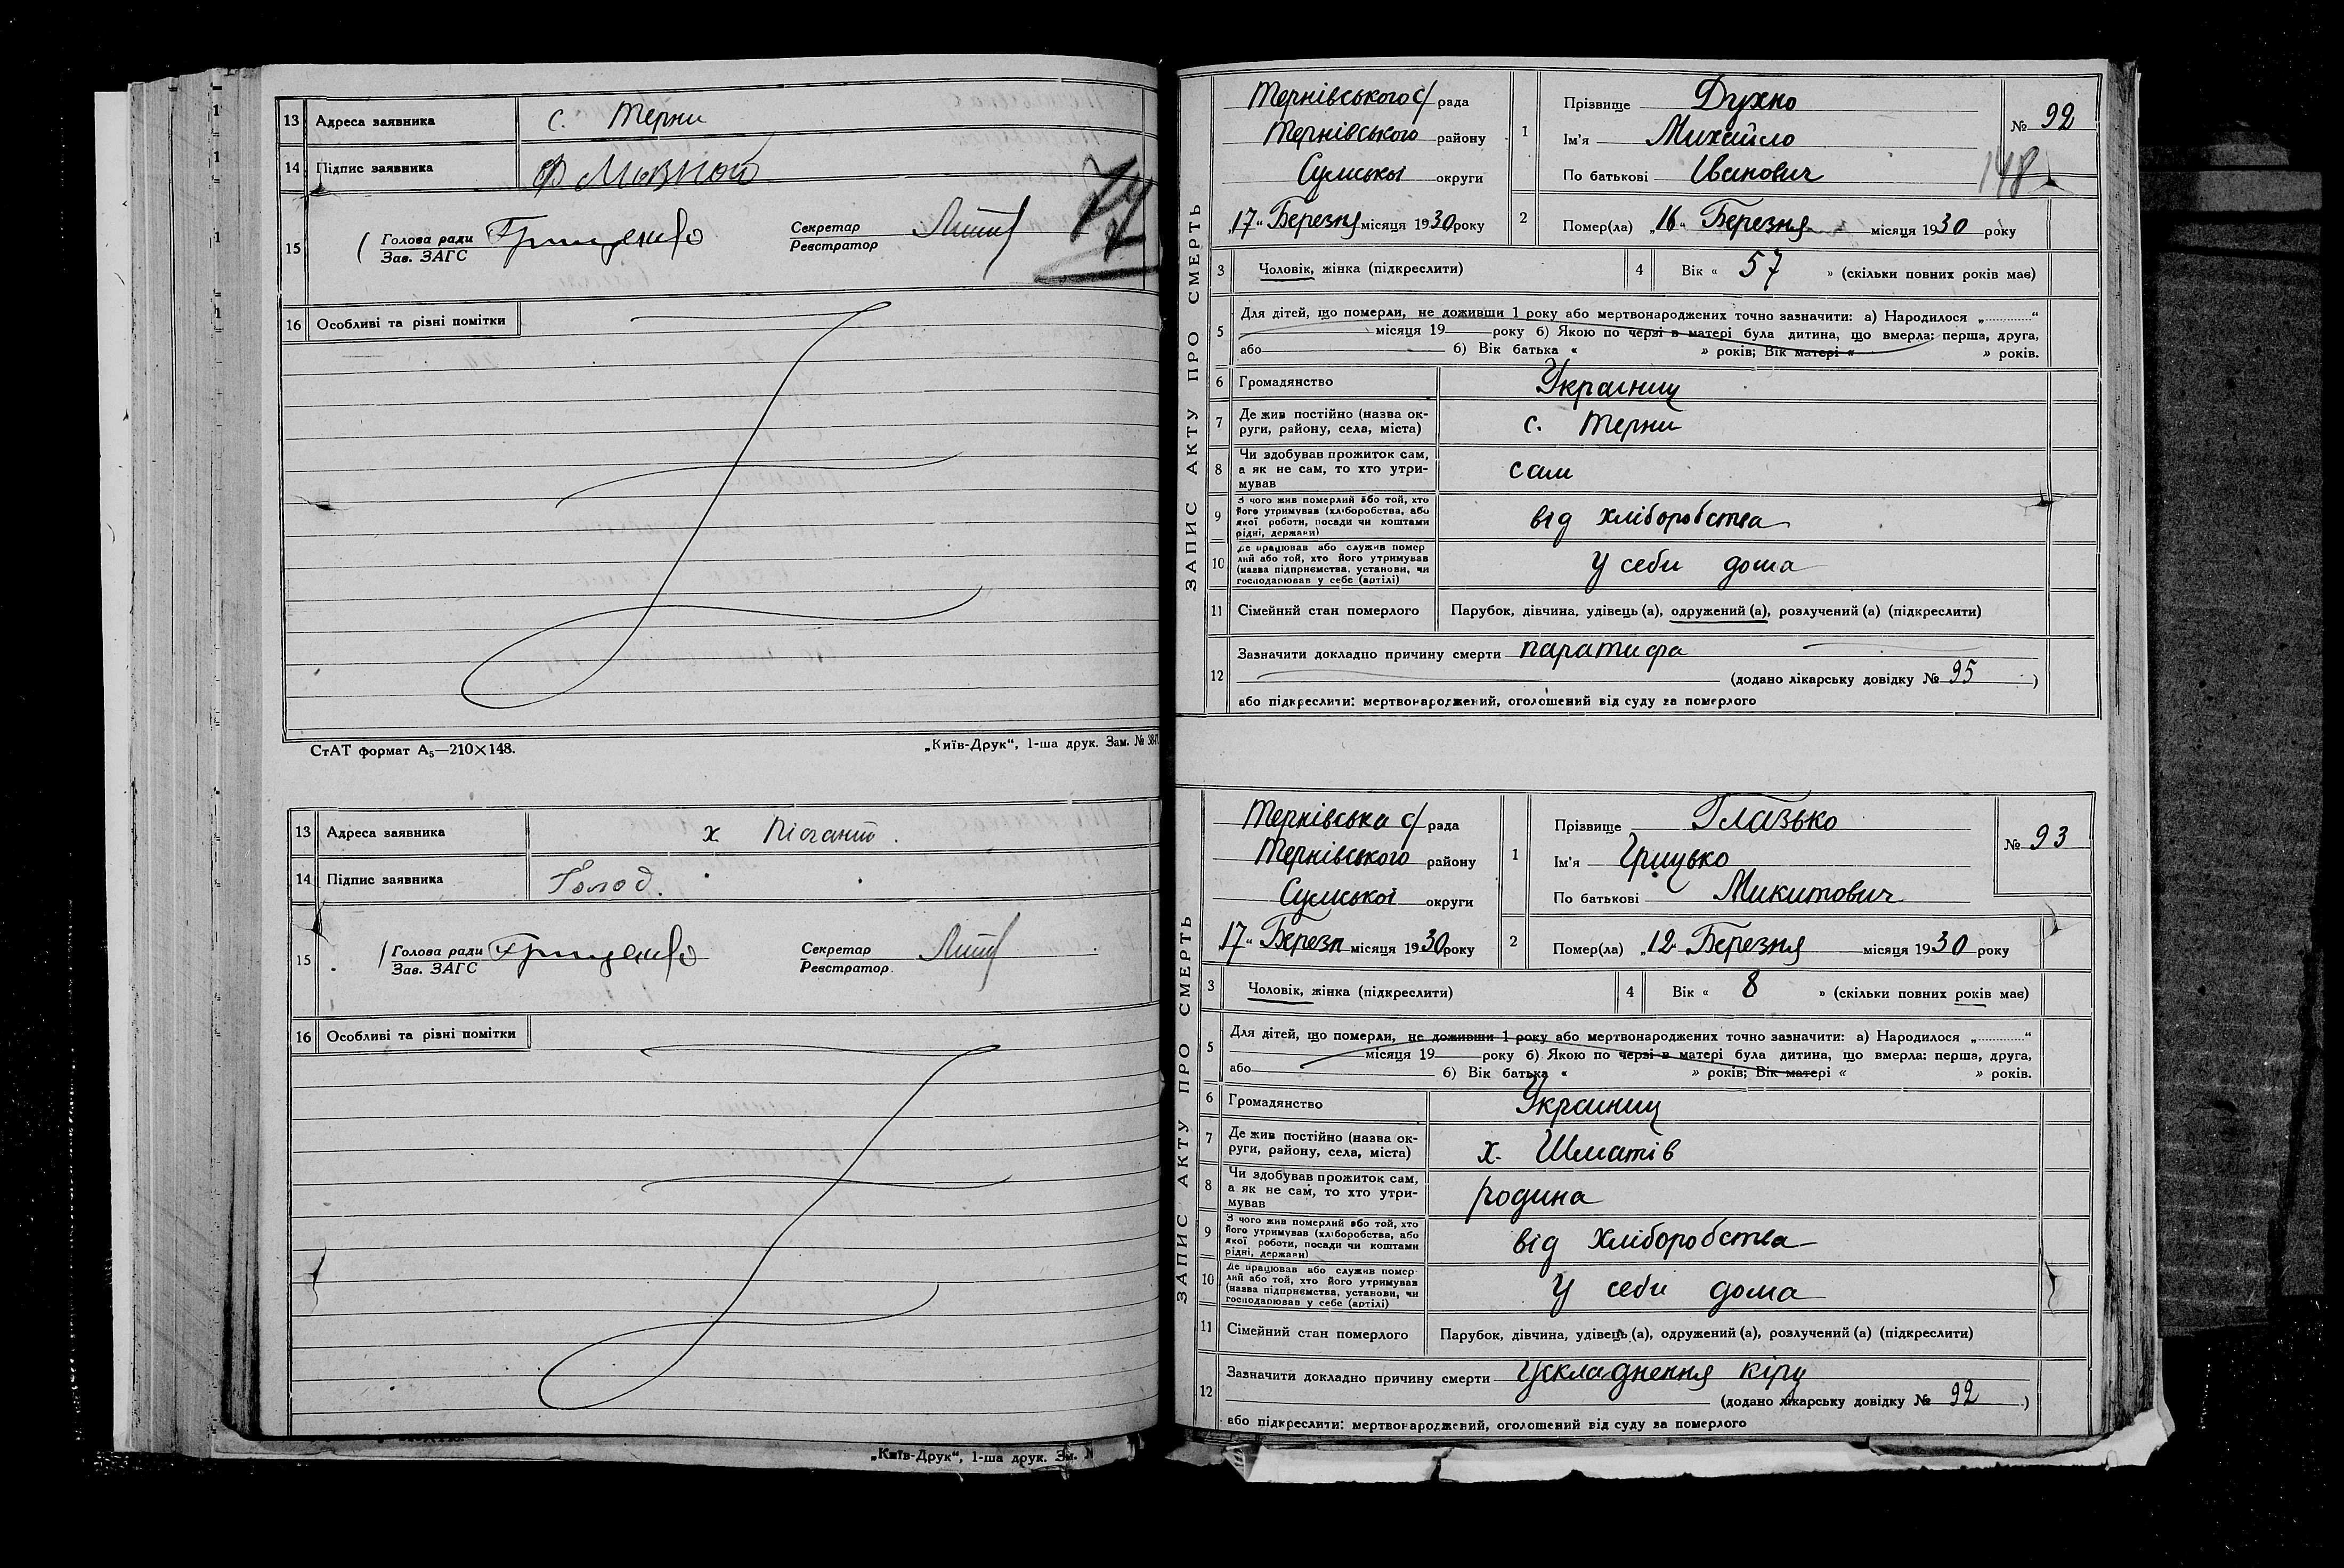 13 Адреса заявника с. Терни
14 Підпис заявника Ф Мазной
15 Голова ради Грищенко Секретар
Зав. ЗАГС Реєстратор
16 Особливі та різні помітки
СтАТ формат А₅—210×148. „Київ-Друк“, 1-ша друк. Зам. №
13 Адреса заявника х
14 Підпис заявника Голод.
15 Голова ради Грищенко Секретар
Зав. ЗАГС Реєстратор
16 Особливі та різні помітки
„Київ-Друк“, 1-ша друк. Зам. №
ЗАПИС АКТУ ПРО СМЕРТЬ
Тернівського с/рада
Тернівського району
Сумської округи
„17“ Березня місяця 1930 року
1 Прізвище Духно
Ім'я Михайло
По батькові Іванович
№ 92
148
2 Помер(ла) „16“ Березня місяця 1930 року
3 Чоловік, жінка (підкреслити) 4 Вік « 57 » (скільки повних років має)
5 Для дітей, що померли, не доживши 1 року або мертвонароджених точно зазначити: а) Народилося „............“
місяця 19 року б) Якою по черзі в матері була дитина, що вмерла: перша, друга,
або б) Вік батька « » років; Вік матері « » років.
6 Громадянство Українец
7 Де жив постійно (назва округи, району, села, міста) с. Терни
8 Чи здобував прожиток сам, а як не сам, то хто утримував сам
9 З чого жив померлий або той, хто його утримував (хліборобства, або якої роботи, посади чи коштами рідні, держави) від хліборобства
10 Де працював або служив померлий або той, хто його утримував (назва підприємства, установи, чи господарював у себе (артілі) у себи дома
11 Сімейний стан померлого Парубок, дівчина, удівець (а), одружений (а), розлучений (а) (підкреслити)
12 Зазначити докладно причину смерти паратифа
(додано лікарську довідку № 95 )
або підкреслити: мертвонароджений, оголошений від суду за померлого
ЗАПИС АКТУ ПРО СМЕРТЬ
Тернівська с/рада
Тернівського району
Сумської округи
17 Березн місяця 1930 року
1 Прізвище Глазько
Ім'я Грицько
По батькові Микитович
№ 93
2 Помер(ла) „12“ Березня місяця 1930 року
3 Чоловік, жінка (підкреслити) 4 Вік « 8 » (скільки повних років має)
5 Для дітей, що померли, не доживши 1 року або мертвонароджених точно зазначити: а) Народилося „............“
місяця 19 року б) Якою по черзі в матері була дитина, що вмерла: перша, друга,
або б) Вік батька « » років; Вік матері « » років.
6 Громадянство Українец
7 Де жив постійно (назва округи, району, села, міста) х. Шматів
8 Чи здобував прожиток сам, а як не сам, то хто утримував родина
9 З чого жив померлий або той, хто його утримував (хліборобства, або якої роботи, посади чи коштами рідні, держави) від хліборобства
10 Де працював або служив померлий або той, хто його утримував (назва підприємства, установи, чи господарював у себе (артілі) у себи дома
11 Сімейний стан померлого Парубок, дівчина, удівець (а), одружений (а), розлучений (а) (підкреслити)
12 Зазначити докладно причину смерти Ускладнення кіру
(додано лікарську довідку № 92 )
або підкреслити: мертвонароджений, оголошений від суду за померлого